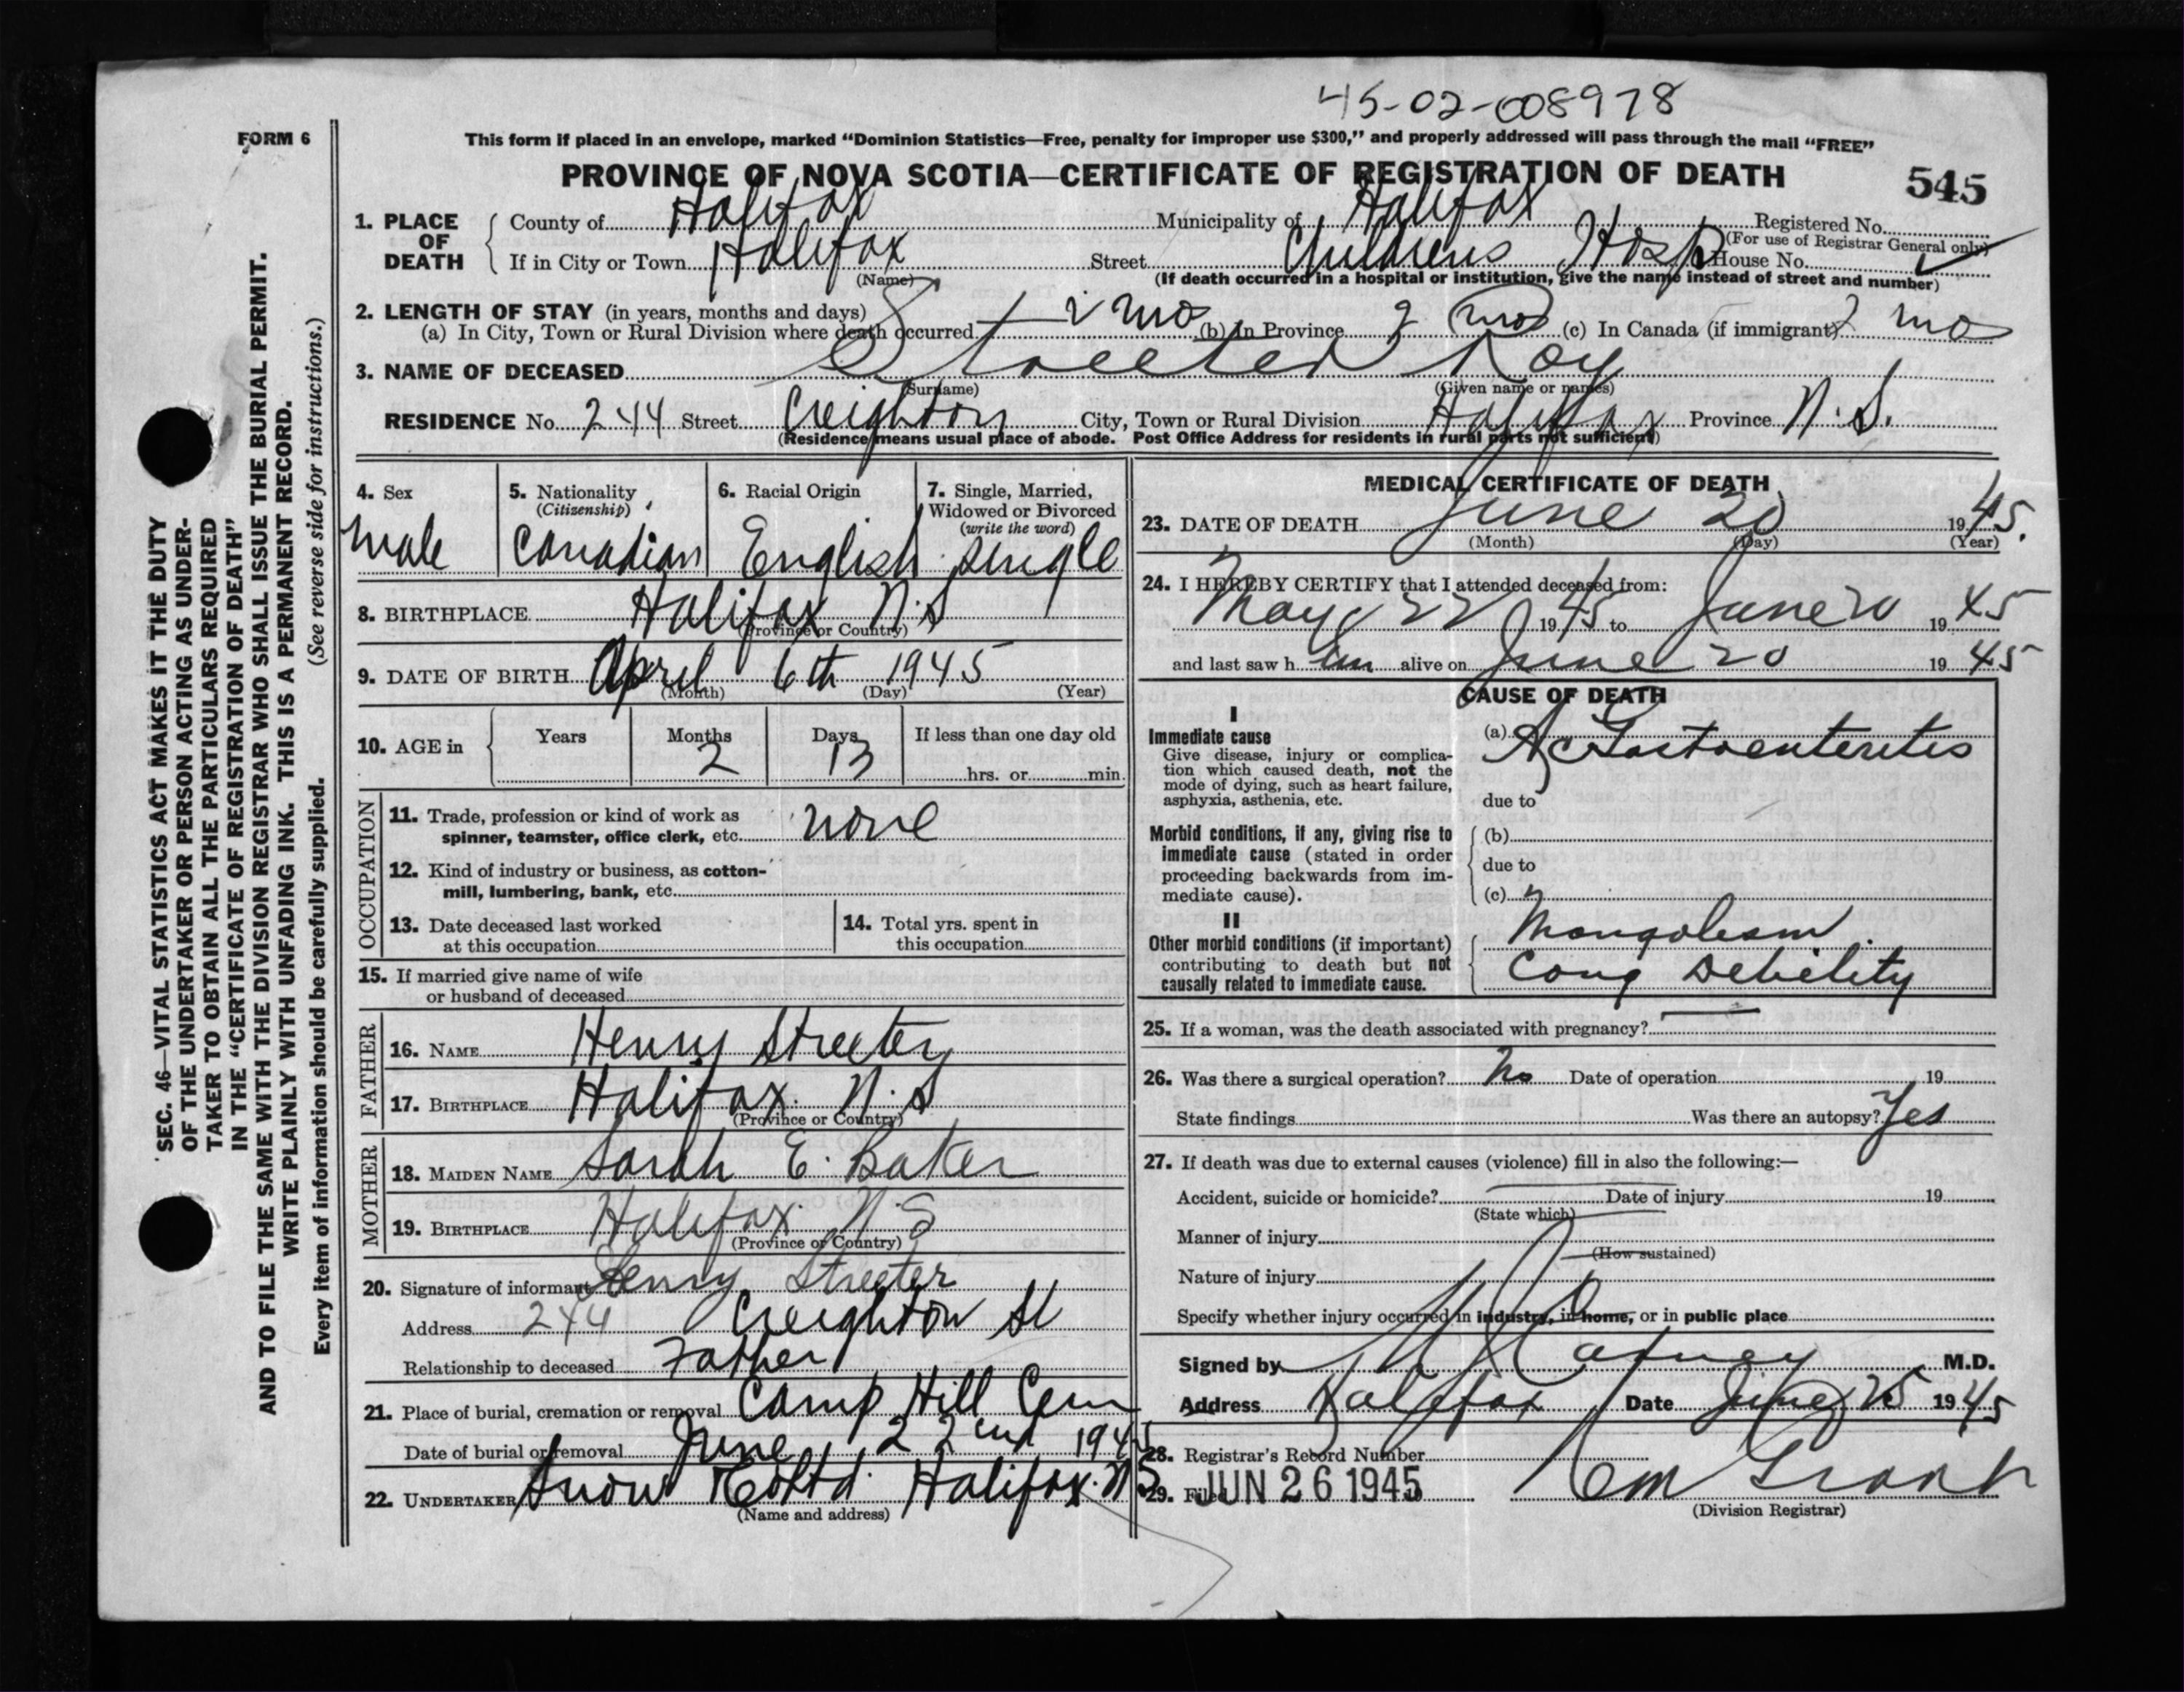 45-02-008978
FORM 6
This form if placed in an envelope, marked “Dominion Statistics—Free, penalty for improper use $300,” and properly addressed will pass through the mail “FREE”
PROVINCE OF NOVA SCOTIA—CERTIFICATE OF REGISTRATION OF DEATH
545
1. PLACE OF DEATH { County of Halifax Municipality of Halifax Registered No.
(For use of Registrar General only)
If in City or Town Halifax Street Childrens Hosp House No.
(Name) (If death occurred in a hospital or institution, give the name instead of street and number)
2. LENGTH OF STAY (in years, months and days)
(a) In City, Town or Rural Division where death occurred 2 mo (b) In Province 2 mo (c) In Canada (if immigrant) 2 mo
3. NAME OF DECEASED Streeter Roy
(Surname) (Given name or names)
RESIDENCE No. 244 Street Creighton City, Town or Rural Division Halifax Province N.S.
(Residence means usual place of abode. Post Office Address for residents in rural parts not sufficient)
4. Sex
male
5. Nationality
(Citizenship)
Canadian
6. Racial Origin
English
7. Single, Married,
Widowed or Divorced
(write the word)
single
8. BIRTHPLACE Halifax N.S
(Province or Country)
9. DATE OF BIRTH April 6th 1945
(Month) (Day) (Year)
10. AGE in { Years Months Days If less than one day old
2 13 hrs. or min.
OCCUPATION
11. Trade, profession or kind of work as
spinner, teamster, office clerk, etc. none
12. Kind of industry or business, as cotton-
mill, lumbering, bank, etc.
13. Date deceased last worked
at this occupation
14. Total yrs. spent in
this occupation
15. If married give name of wife
or husband of deceased
FATHER
16. NAME Henry Streeter
17. BIRTHPLACE Halifax. N.S
(Province or Country)
MOTHER
18. MAIDEN NAME Sarah E. Baker
19. BIRTHPLACE Halifax. N S
(Province or Country)
20. Signature of informant Henry Streeter
Address 244 Creighton St
Relationship to deceased Father
21. Place of burial, cremation or removal Camp Hill Cem
Date of burial or removal June 22nd 1945
22. UNDERTAKER Snow & Co Ltd. Halifax. N S
(Name and address)
MEDICAL CERTIFICATE OF DEATH
23. DATE OF DEATH June 20 1945.
(Month) (Day) (Year)
24. I HEREBY CERTIFY that I attended deceased from:
May 22 1945 to June 20 1945
and last saw h im alive on June 20 1945
CAUSE OF DEATH
I
Immediate cause
Give disease, injury or complica-
tion which caused death, not the
mode of dying, such as heart failure,
asphyxia, asthenia, etc.
(a) Ac Gastroenteritis
due to
Morbid conditions, if any, giving rise to
immediate cause (stated in order
proceeding backwards from im-
mediate cause).
(b)
due to
(c)
II
Other morbid conditions (if important)
contributing to death but not
causally related to immediate cause.
Mongolism
Cong Debility
25. If a woman, was the death associated with pregnancy? —
26. Was there a surgical operation? No Date of operation 19
State findings Was there an autopsy? Yes
27. If death was due to external causes (violence) fill in also the following:—
Accident, suicide or homicide? Date of injury 19
(State which)
Manner of injury
(How sustained)
Nature of injury
Specify whether injury occurred in industry, in home, or in public place
Signed by M.D.
Address Halifax Date June 25 1945
28. Registrar's Record Number
29. Filed JUN 26 1945
(Division Registrar)
SEC. 46—VITAL STATISTICS ACT MAKES IT THE DUTY
OF THE UNDERTAKER OR PERSON ACTING AS UNDER-
TAKER TO OBTAIN ALL THE PARTICULARS REQUIRED
IN THE “CERTIFICATE OF REGISTRATION OF DEATH”
AND TO FILE THE SAME WITH THE DIVISION REGISTRAR WHO SHALL ISSUE THE BURIAL PERMIT.
WRITE PLAINLY WITH UNFADING INK. THIS IS A PERMANENT RECORD.
Every item of information should be carefully supplied. (See reverse side for instructions.)